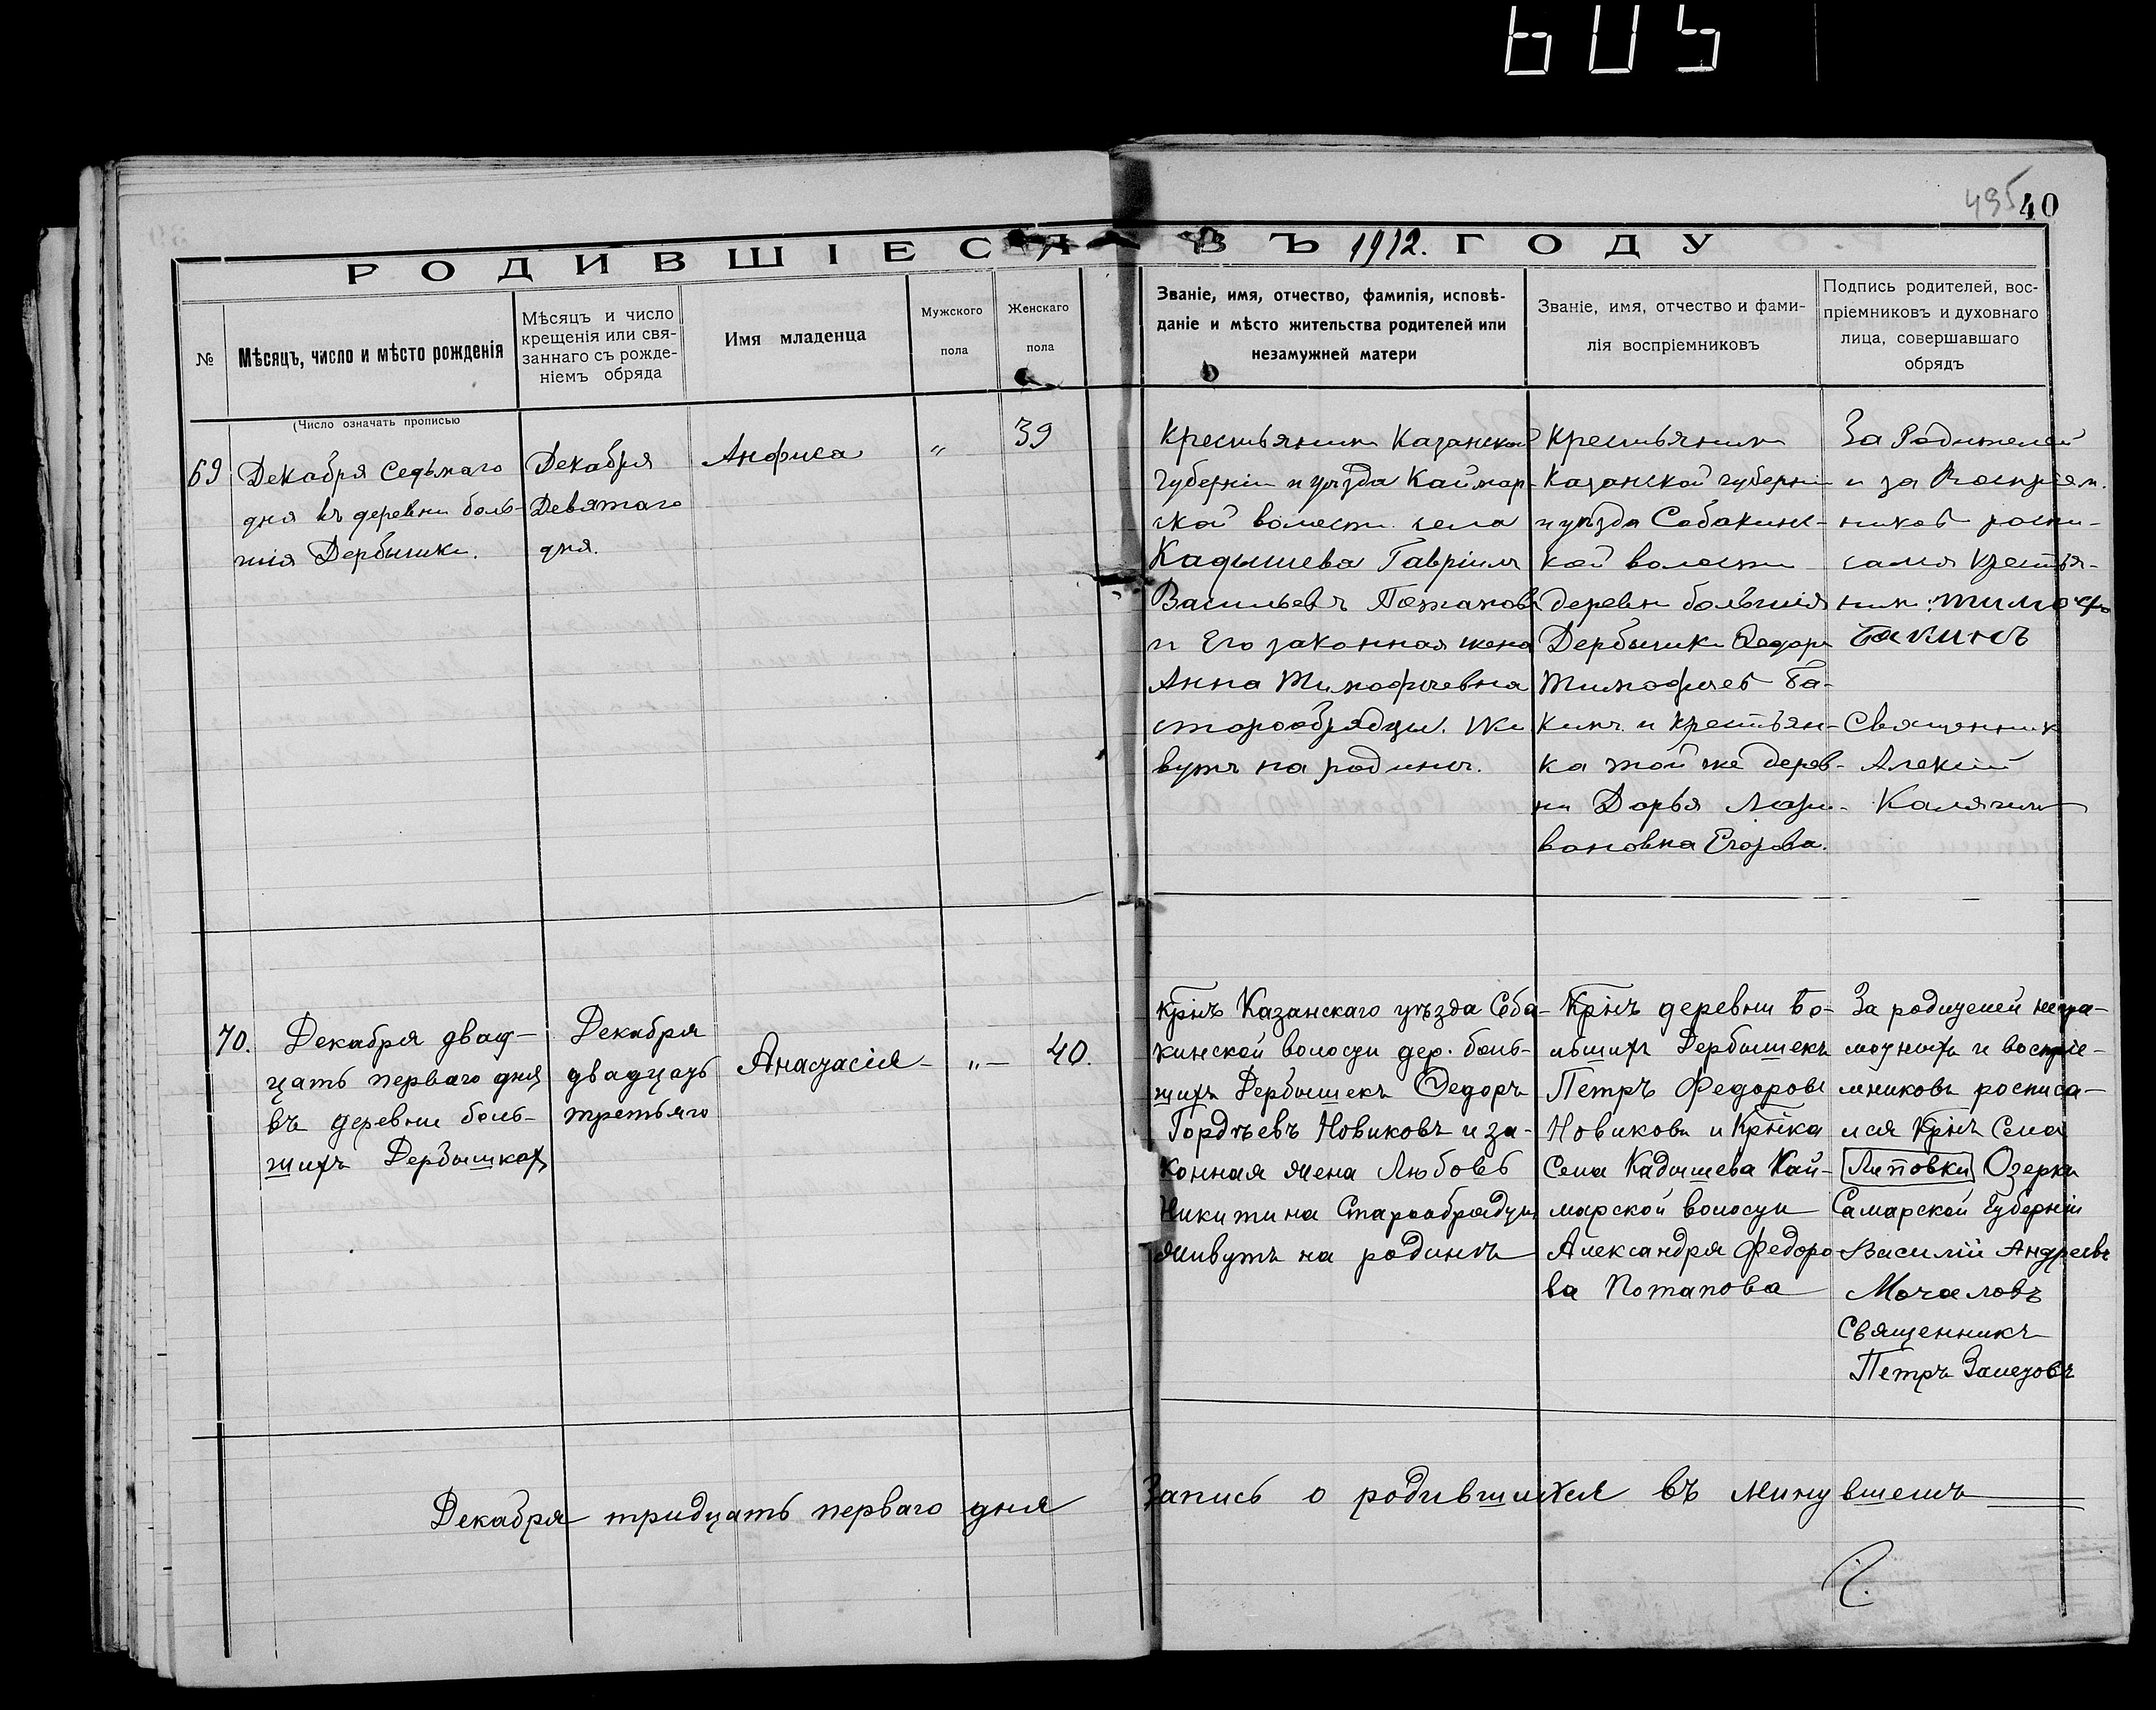 605
495
40
РОДИВШІЕСЯ ВЪ 1912. ГОДУ
№
Мѣсяцъ, число и мѣсто рожденія
Мѣсяцъ и число
крещенія или свя-
заннаго съ рожде-
ніемъ обряда
Имя младенца
Мужского
пола
Женскаго
пола
Званіе, имя, отчество, фамилія, исповѣ-
даніе и мѣсто жительства родителей или
незамужней матери
Званіе, имя, отчество и фами-
лія воспріемниковъ
Подпись родителей, вос-
пріемниковъ и духовнаго
лица, совершавшаго
обрядъ
(Число означать прописью
69
Декабря Седьмаго
дня въ деревни боль-
шія Дербышки.
Декабря
Девятаго
дня.
Анфиса
"
39
Крестьянин Казанской
губерніи и уѣзда Каймар-
ской волости села
Кадышева Гавріилъ
Васильевъ Потаповъ
и Его законная жена
Анна Тимофѣевна
старообрядцы. Жи
вутъ на родинѣ.
Крестьянин
Казанской губерніи
и уѣзда Собакинс-
кой волости
деревн большія
Дербышки Федоръ
Тимофѣев Ба-
кинъ и крестьян-
ка той же дерев-
ни Дарья
вановна Егорова.
За Родителей
и за Воспріем.
ников роспи-
сался Крестья-
нин Тимофѣ
Бакинъ
Священник
Алексій
Калягин
70.
Декабря двад-
цать перваго дня
въ деревни боль-
шихъ Дербышках
Декабря
двадцать
третьяго
Анастасія -
" —
40.
Крнъ Казанскаго уѣзда Соба-
кинской волости дер. боль-
шихъ Дербышекъ Федоръ
Гордѣевъ Новиковъ и за-
конная жена Любовь
Никитина Старообрядцы
Живутъ на родинѣ
Крнъ деревни Бо-
льшихъ Дербышекъ
Петръ Федоровъ
Новиковъ и Крнка
Села Кадышева Кай-
марской волости
Александра Федоро
ва Потапова
За родителей негра-
мотныхъ и воспріе-
мниковъ росписа-
лся Крнъ Села
Липовки Озерки
Самарской Губерніи
Василій Андреевъ
Мочаловъ
Священникъ
Петръ
Декабря тридцать перваго дня Запись о родившихся въ минувшемъ